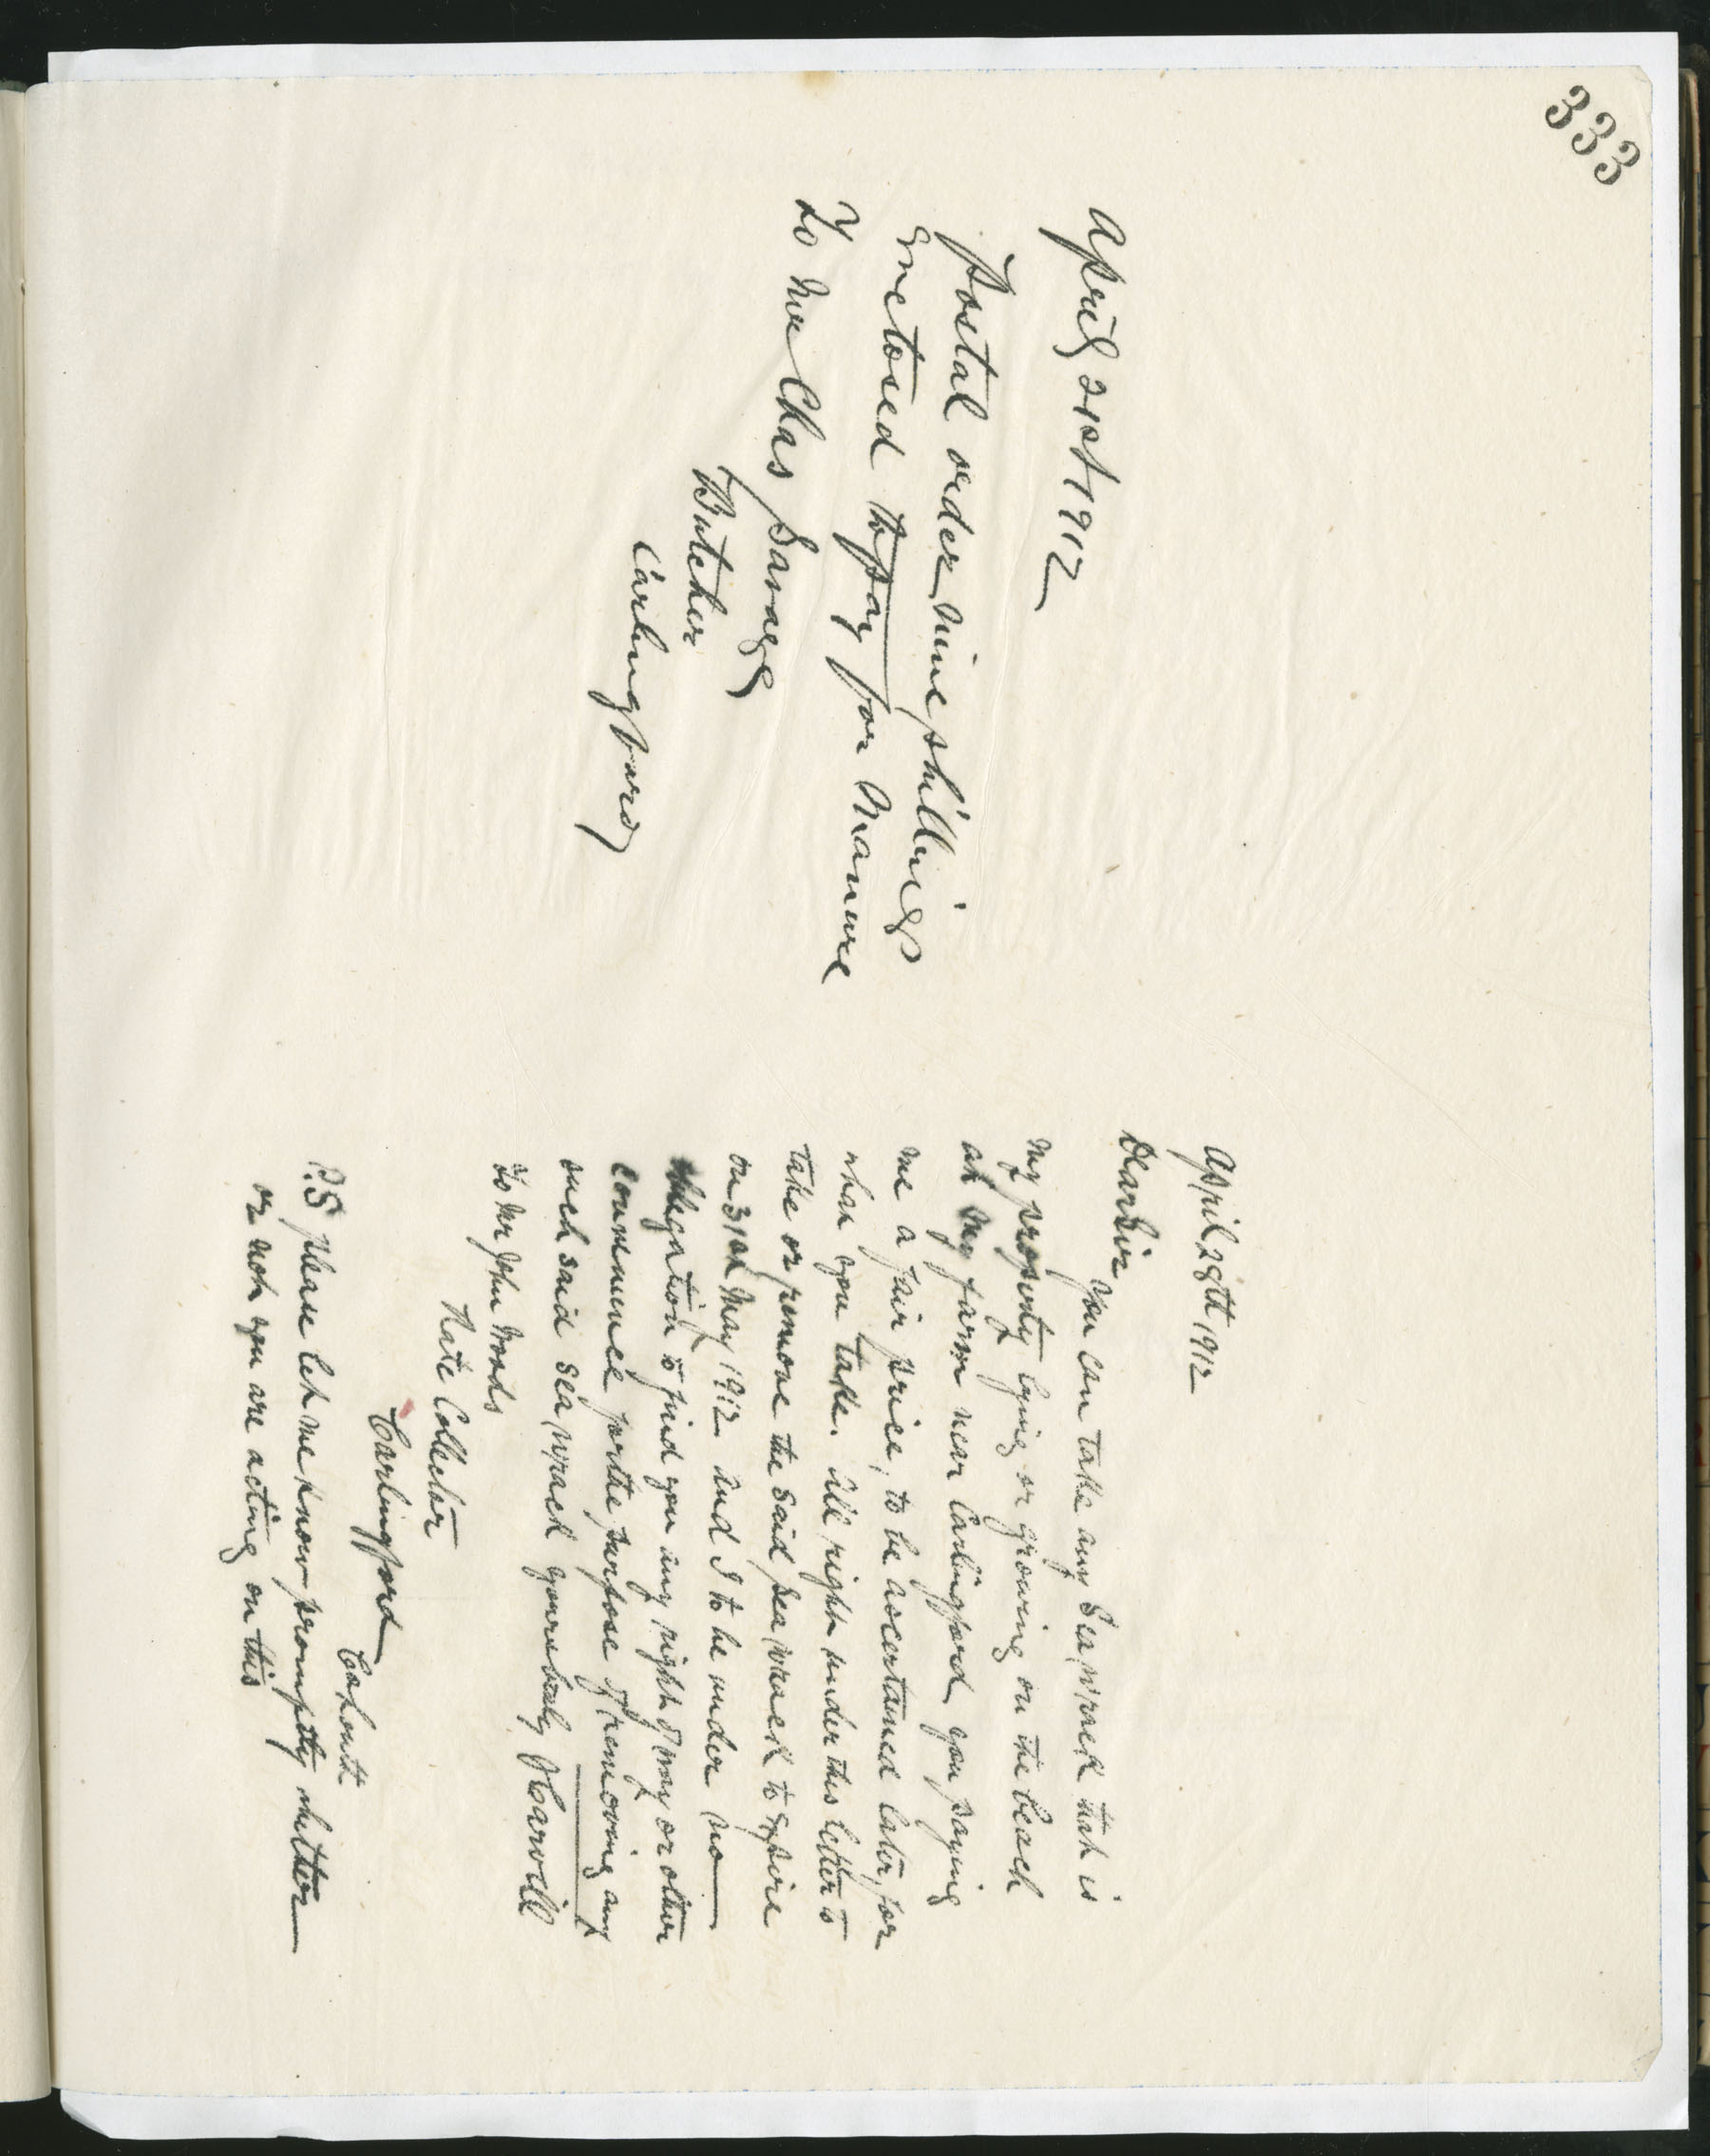 333
April 21st 1912
Postal order nine shillings
enclosed to pay for Manure
To Mr Chas Savage
Butcher
Carlingford
April 28th 1912
Dear Sir
You can take any Sea wrack that is
my property lying or growing on the beach
at my farm near Carlingford you paying
me a fair price, to be ascertained later, for
what you take. All right under this letter to
take or remove the said sea wrack to expire
on 31st May 1912. And I to be under no
obligation to find you any right of way or other
convenience for the purpose of removing any
such said sea wrack yours truly Harvill
To Mr John Woods
Rate Collector
Carlingford
Co Louth
P.S please let me know promptly whether
or not you are acting on this